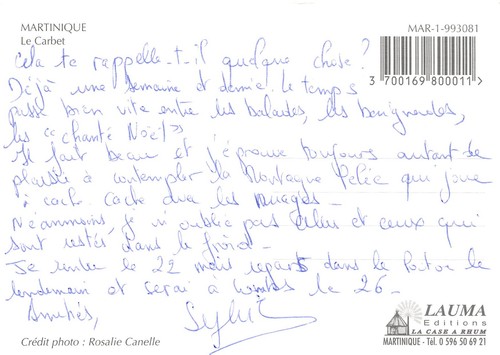 MARTINIQUE
Le Carbet
MAR-1-993081
Cela te rappelle-t-il quelque chose ?
Déjà une semaine et demie. le temps
passe bien vite entre les balades, les baignades,
les "chanté Noël".
Il fait beau et j'éprouve toujours autant de
plaisir à contempler la Montagne Pelée qui joue
à cache cache avec les nuages.
Néanmoins, je n'oublie pas celles et ceux qui
sont restés dans le froid.
Je rentre le 22 mais repars dans le Poitou le
lendemain et serai à le 26.
Amitiés,
Sylvie
3 700169 800011 >
LAUMA
Editions
LA CASE A RHUM
MARTINIQUE - Tél. 0 596 50 69 21
Crédit photo : Rosalie Canelle